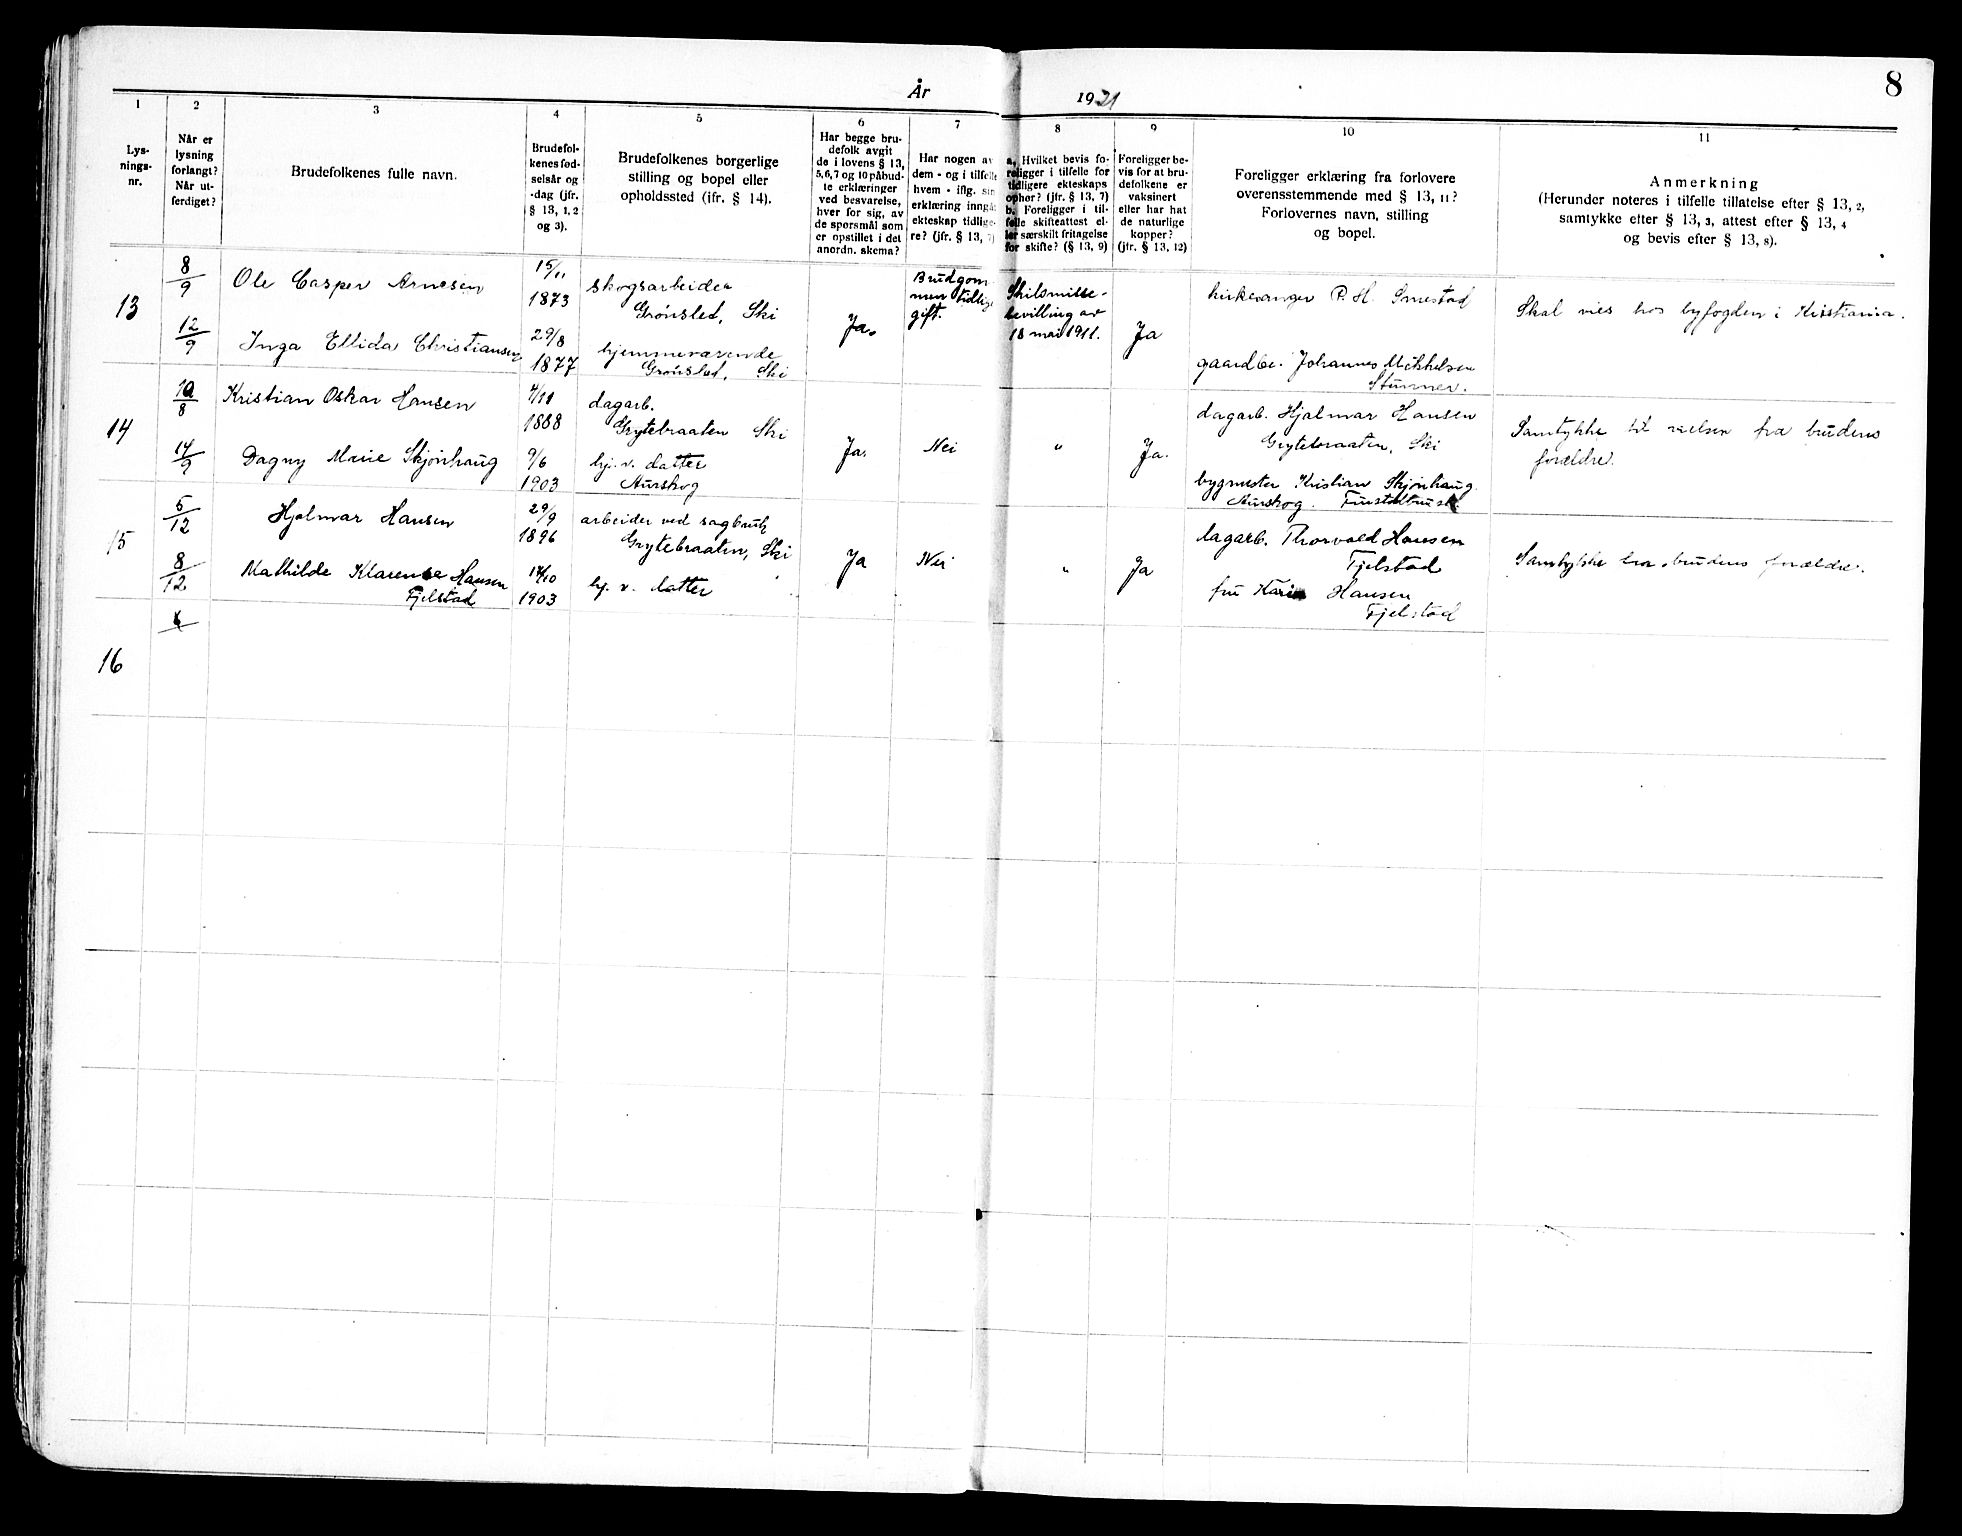 8
År 1921
1
Lys-
nings-
nr.
2
Når er
lysning
forlangt?
Når ut-
ferdiget?
3
Brudefolkenes fulle navn.
4
Brudefol-
kenes fød-
selsår og
-dag (jfr.
§ 13, 1, 2
og 3).
5
Brudefolkenes borgerlige
stilling og bopel eller
opholdssted (jfr. § 14).
6
Har begge bru-
defolk avgit
de i lovens § 13,
5, 6, 7 og 10 påbud-
te erklæringer
ved besvarelse,
hver for sig, av
de spørsmål som
er opstillet i det
anordn. skema?
7
Har nogen av
dem - og i tilfelle
hvem - iflg. sin
erklæring inngåt
ekteskap tidlige-
re? (jfr. § 13, 7)
8
a. Hvilket bevis fo-
religger i tilfelle for
tidligere ekteskaps
ophør? (jfr. § 13, 7)
b. Foreligger i til-
felle skifteattest el-
ler særskilt fritagelse
for skifte? (§ 13, 9)
9
Foreligger be-
vis for at bru-
defolkene er
vaksinert
eller har hat
de naturlige
kopper?
(jfr. § 13, 12)
10
Foreligger erklæring fra forlovere
overensstemmende med § 13, 11?
Forlovernes navn, stilling
og bopel.
11
Anmerkning
(Herunder noteres i tilfelle tillatelse efter § 13, 2,
samtykke efter § 13, 3, attest efter § 13, 4
og bevis efter § 13, 8).
13
8/9
12/9
Ole Casper Arnesen
Inga Ellida Christiansen
15/11
1873
29/8
1877
skogsarbeider
Grønsled, Ski
hjemmeværende
Grønsled, Ski
Ja.
Brudgom-
men tidlig.
gift.
Skilsmisse-
bevilling av
18 mai 1911.
Ja
kirkesanger P. H. Smestad
gaardbr. Johannes Mikkelsen
Stunner.
Skal vies hos byfogden i Kristiania.
14
10/8
14/9
Kristian Oskar Hansen
Dagny Marie Skjønhaug
4/11
1888
9/6
1903
dagarb.
Grytebraaten Ski
hj. v. datter
Aurskog
Ja.
Nei
"
Ja.
dagarb. Hjalmar Hansen
Grytebraaten, Ski
bygmester Kristian Skjønhaug.
Aurskog.
Samtykke til vielsen fra brudens
forældre.
15
5/12
8/12
Hjalmar Hansen
Mathilde Klarense Hansen
Fjelstad
29/9
1896
14/10
1903
arbeider ved sagbruk
Grytebraaten, Ski
hj. v. datter
Ja
Nei
"
Ja
dagarb. Thorvald Hansen
Fjelstad
fru Karin Hansen
Fjelstad
Samtykke fra brudens forældre.
16